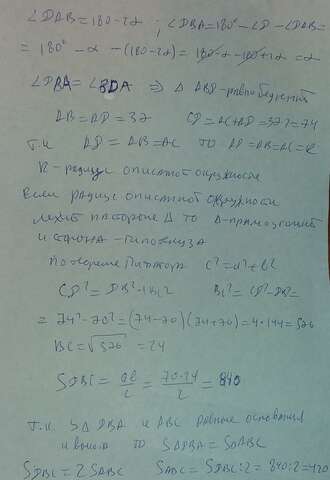 ∠DAB = 180-2α ; ∠DBA = 180° - ∠D - ∠DAB =
= 180° - α - (180-2α) = 180-α-180+2α = α
∠DBA = ∠BDA ⇒ Δ ABD - равнобедренный
AB = AD = 37 CD = AC+AD = 37·2 = 74
т.к AD = AB = AC то AD = AB = AC = R
R - радиус описанной окружности
Если радиус описанной окружности
лежит на стороне Δ то Δ-прямоугольный
и сторона - гипотенуза
По теореме Пифагора c² = a² + b²
CD² = DB² + BC² BC² = CD² - DB² =
= 74² - 70² = (74-70)(74+70) = 4·144 = 576
BC = √576 = 24
S DBC = ab/2 = 70·24/2 = 840
т.к. SΔ DBA и ABC равные основания
и высота то SΔDBA = SΔABC
S DBC = 2 S ABC S ABC = S DBC : 2 = 840:2 = 420